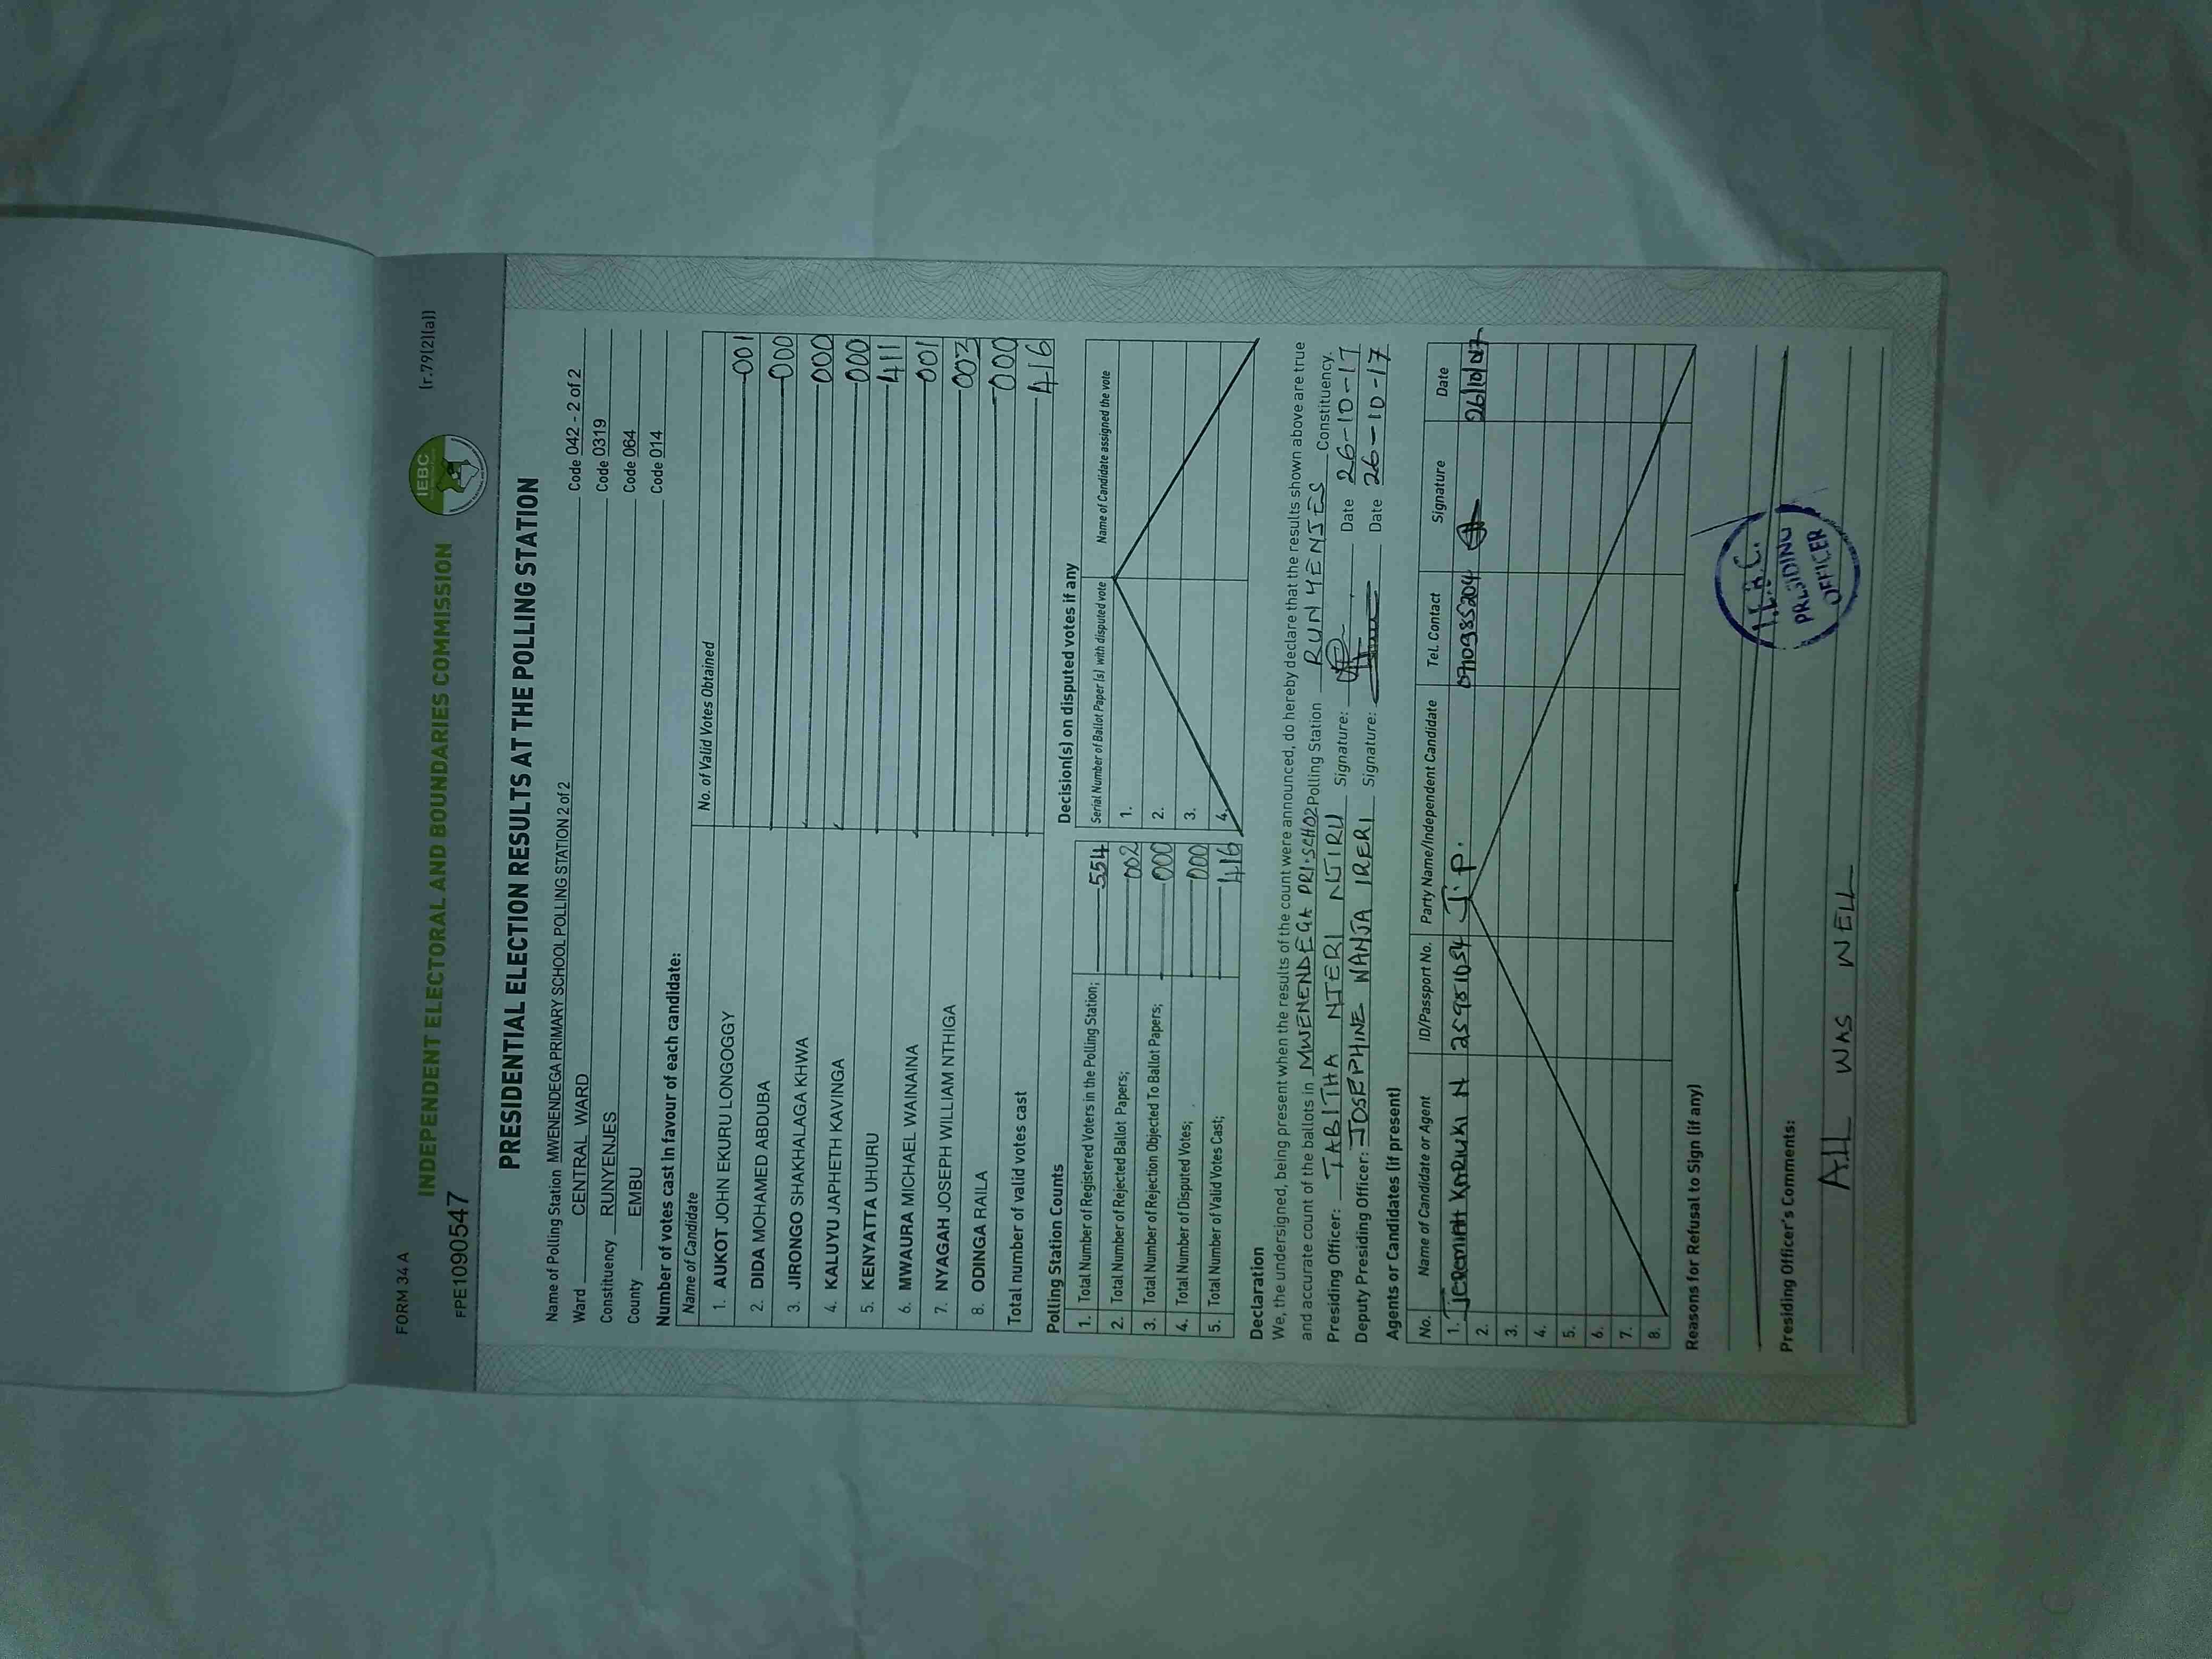 FORM 34 A
(r.79(2)(a))
INDEPENDENT ELECTORAL AND BOUNDARIES COMMISSION
IEBC
FPE1090547
PRESIDENTIAL ELECTION RESULTS AT THE POLLING STATION
Name of Polling Station MWENENDEGA PRIMARY SCHOOL POLLING STATION 2 of 2 Code 042 - 2 of 2
Ward CENTRAL WARD Code 0319
Constituency RUNYENJES Code 064
County EMBU Code 014
Number of votes cast in favour of each candidate:
Name of Candidate No. of Valid Votes Obtained
1. AUKOT JOHN EKURU LONGOGGY 001
2. DIDA MOHAMED ABDUBA 000
3. JIRONGO SHAKHALAGA KHWA 000
4. KALUYU JAPHETH KAVINGA 000
5. KENYATTA UHURU 411
6. MWAURA MICHAEL WAINAINA 001
7. NYAGAH JOSEPH WILLIAM NTHIGA 003
8. ODINGA RAILA 000
Total number of valid votes cast 416
Polling Station Counts
1. Total Number of Registered Voters in the Polling Station; 554
2. Total Number of Rejected Ballot Papers; 002
3. Total Number of Rejection Objected To Ballot Papers; 000
4. Total Number of Disputed Votes; 000
5. Total Number of Valid Votes Cast; 416
Decision(s) on disputed votes if any
Serial Number of Ballot Paper (s) with disputed vote Name of Candidate assigned the vote
1.
2.
3.
4.
Declaration
We, the undersigned, being present when the results of the count were announced, do hereby declare that the results shown above are true
and accurate count of the ballots in MWENENDEGA PRI-SCHO2 Polling Station RUNYENJES Constituency.
Presiding Officer: TABITHA NJERI NJIRU Signature: Date 26-10-17
Deputy Presiding Officer: JOSEPHINE WANJA IRERI Signature: Date 26-10-17
Agents or Candidates (if present)
No. Name of Candidate or Agent ID/Passport No. Party Name/Independent Candidate Tel. Contact Signature Date
1. JEREMIAH KARIUKI N J.P. 0710985204 26/10/17
2.
3.
4.
5.
6.
7.
8.
Reasons for Refusal to Sign (if any)
I.E.B.C.
PRESIDING
OFFICER
Presiding Officer's Comments:
ALL WAS WELL